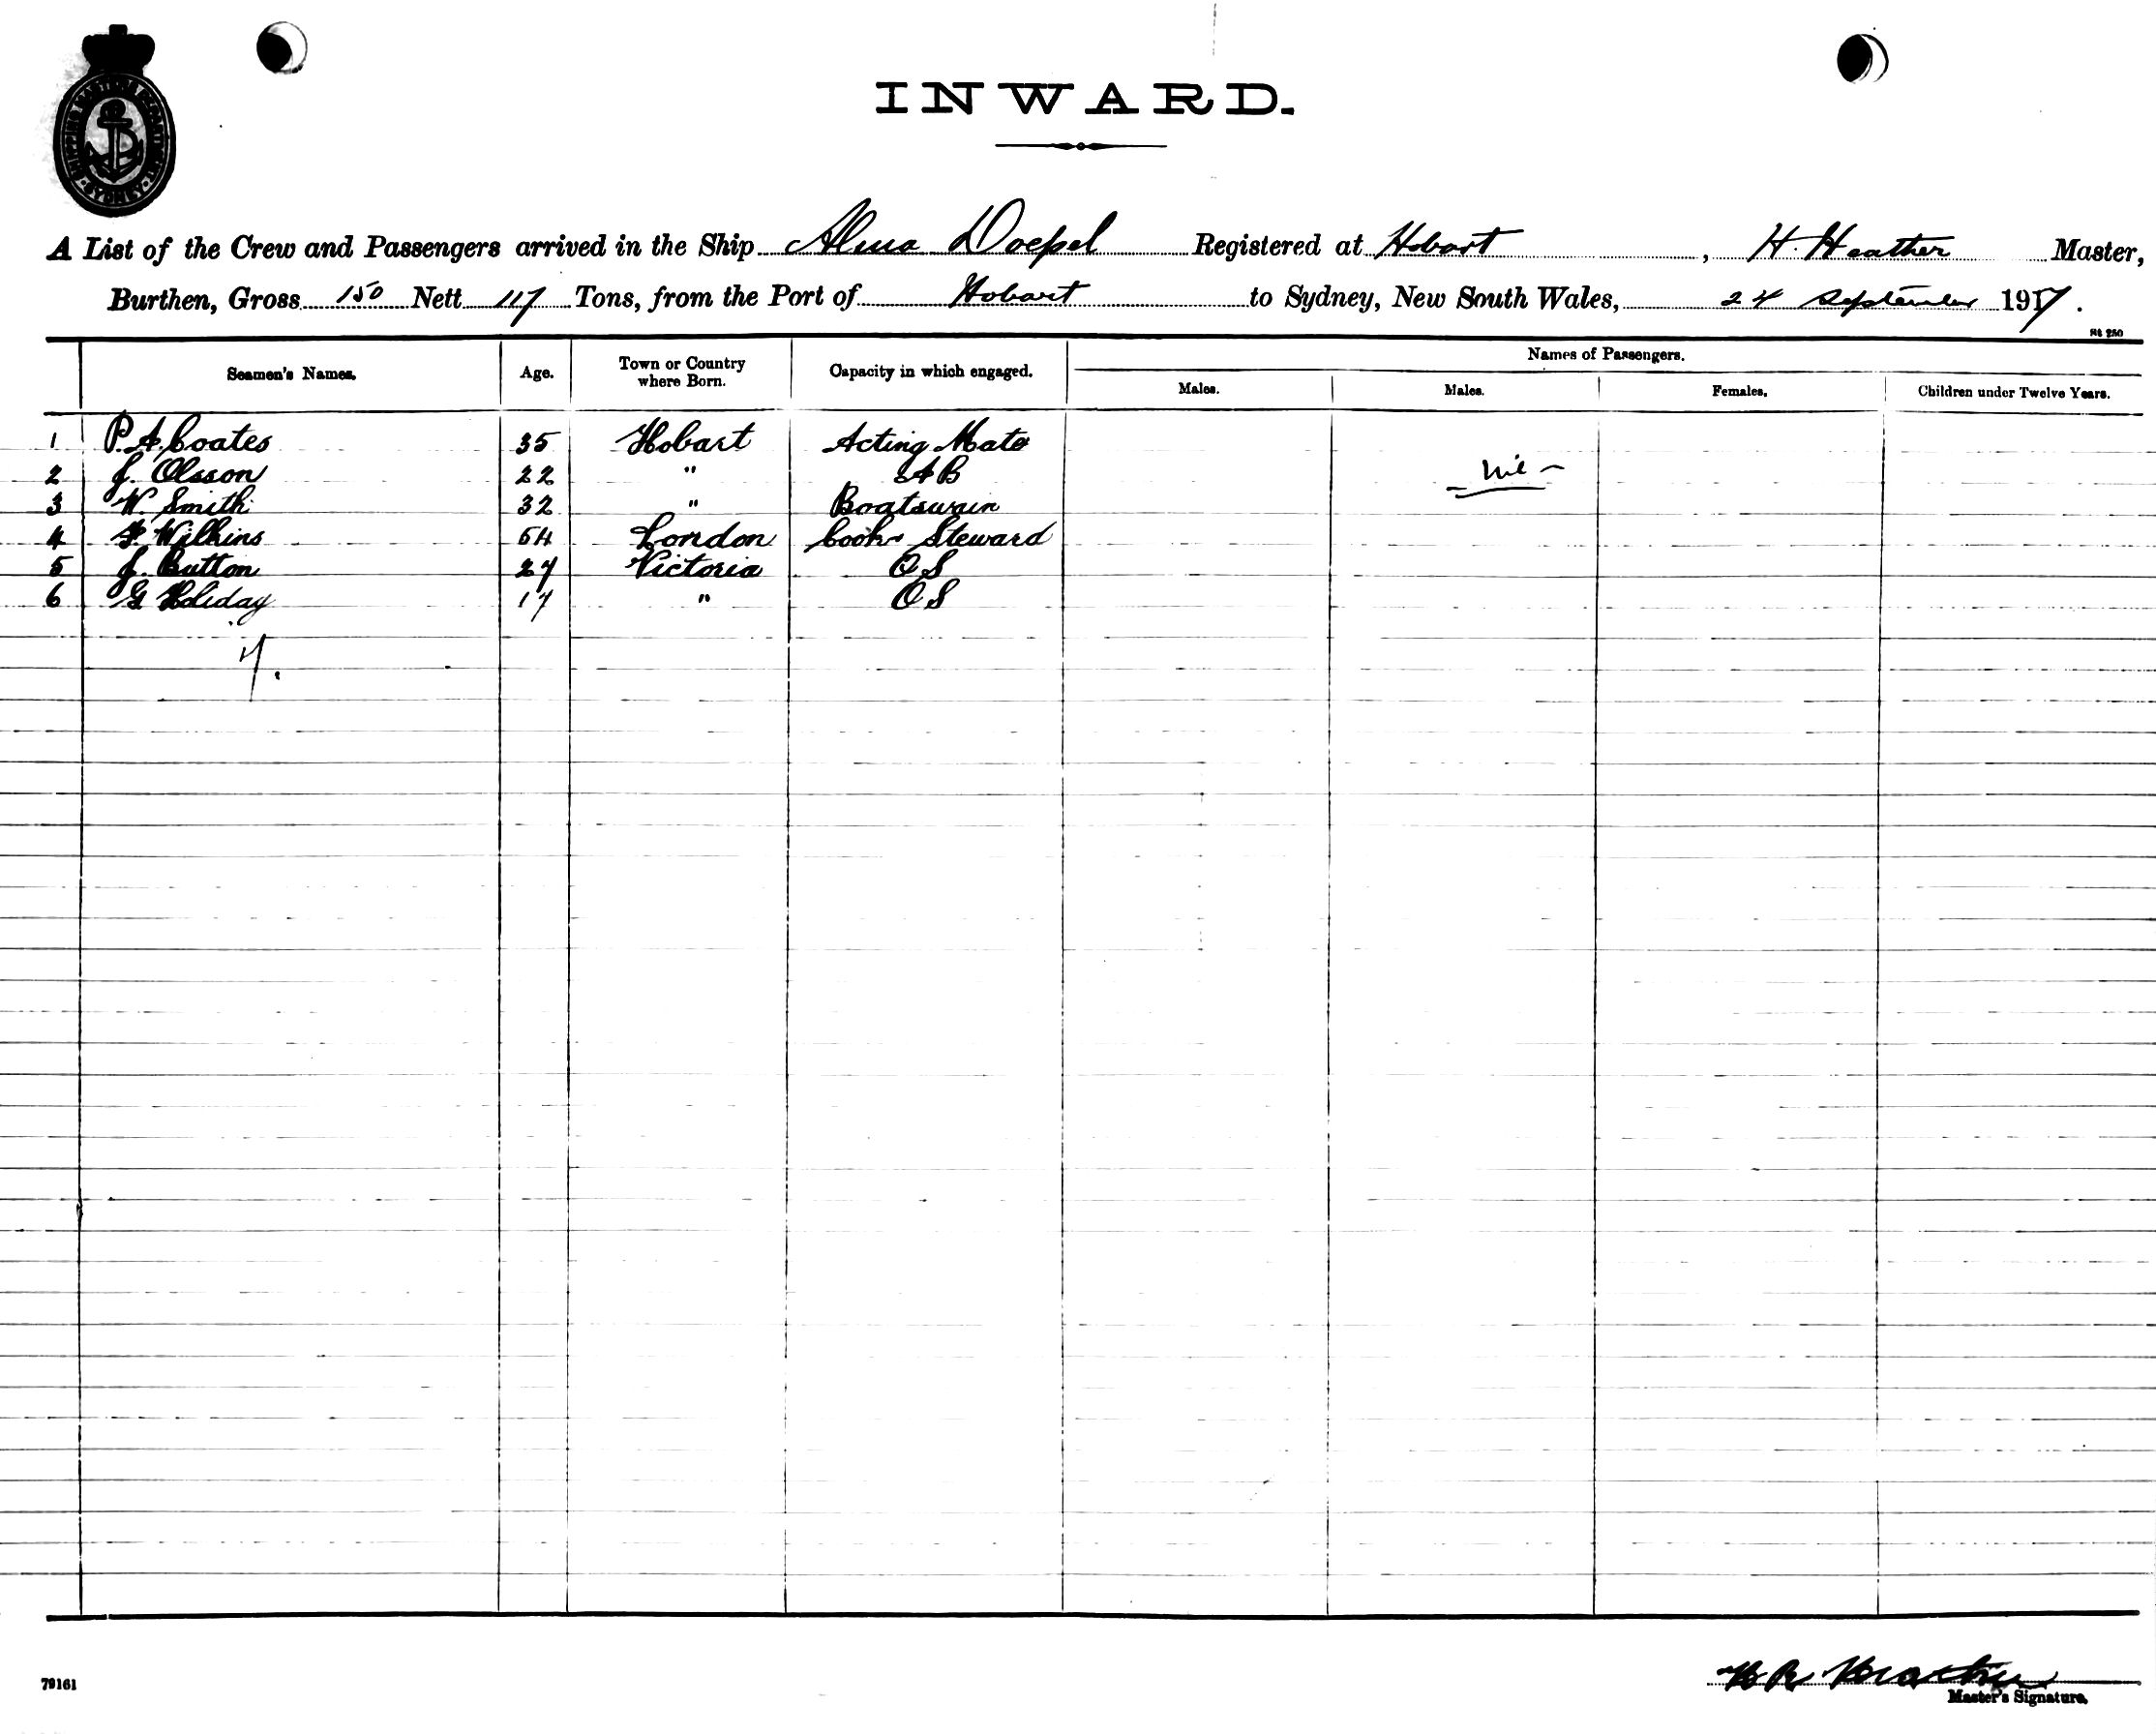 SHIPPING MASTER'S DEPARTMENT SYDNEY
INWARD.
A List of the Crew and Passengers arrived in the Ship Alma Doepel Registered at Hobart, H. Heather Master,
Burthen, Gross 150 Nett 117 Tons, from the Port of Hobart to Sydney, New South Wales, 24 September 1917.
St 250
Seamen's Names. Age. Town or Country where Born. Capacity in which engaged. Names of Passengers.
Males. Males. Females. Children under Twelve Years.
1 P. A. Coates 35 Hobart Acting Mate
2 J. Olsson 22 " AB nil
3 W. Smith 32 " Boatswain
4 Wilkins 54 London Cook Steward
5 J. Button 27 Victoria OS
6 G Holiday 17 " OS
7.
79161
Master's Signature.